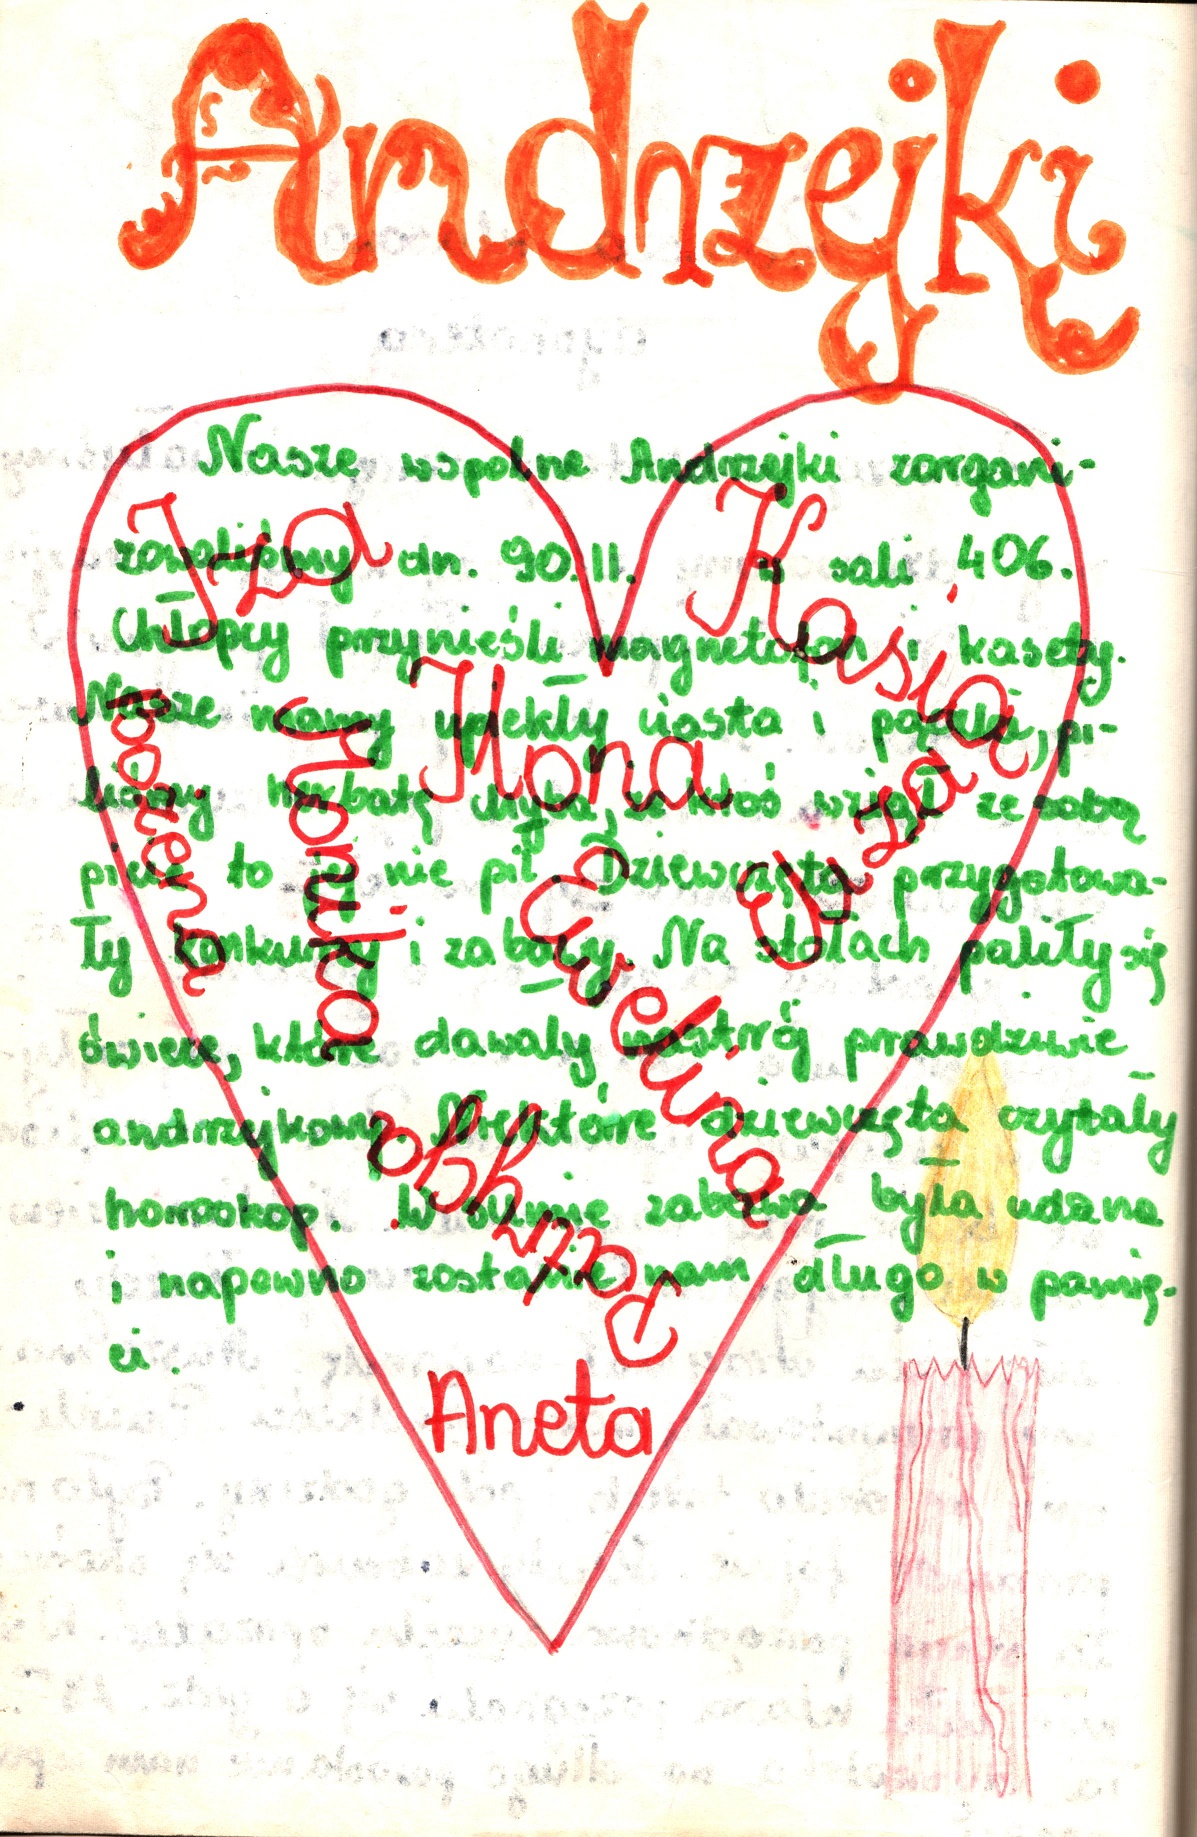 Andrzejki
Nasze wspólne Andrzejki zorgani-
zowaliśmy dn. 90.11. w sali 406.
Chłopcy przynieśli magnetofon i kasety.
Nasze mamy upiekły ciasta i pączki, pi-
liśmy herbatę chyba, że ktoś wziął ze sobą
picie to jej nie pił. Dziewczęta przygotowa-
ły konkursy i zabawy. Na stołach paliły się
świece, które dawały nastrój prawdziwie
andrzejkowy. Niektóre dziewczęta czytały
horoskop. W sumie zabawa była udana
i napewno zostanie nam długo w pamię-
ci.
Iza
Kasia
Ilona
Bożena
Monika
Elza
Ewelina
Patrycja
Aneta